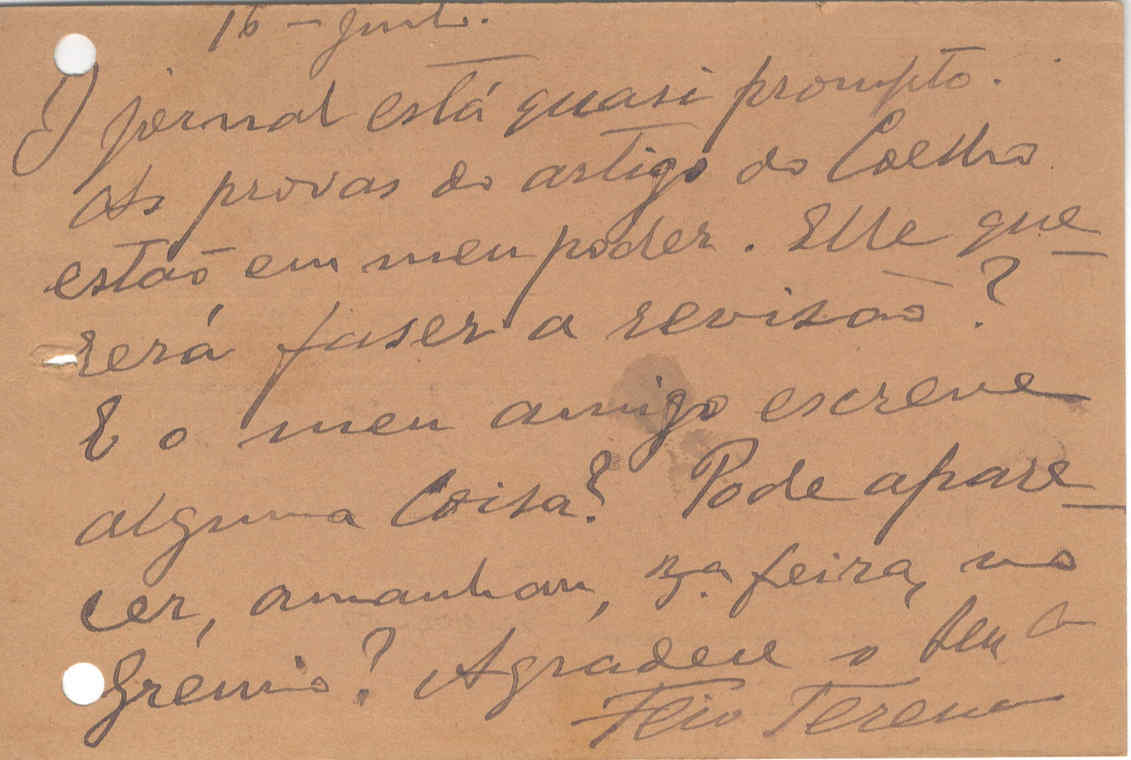 16 - Junh.
O jornal está quasi prompto.
As provas do artigo do Coelho
estão em meu poder. Elle que-
rerá faser a revisão?
E o meu amigo escreve
alguma coisa? Pode apare-
cer, amanhan, 3ª feira, no
Grémio? Agradece o seu
Feio Terenas